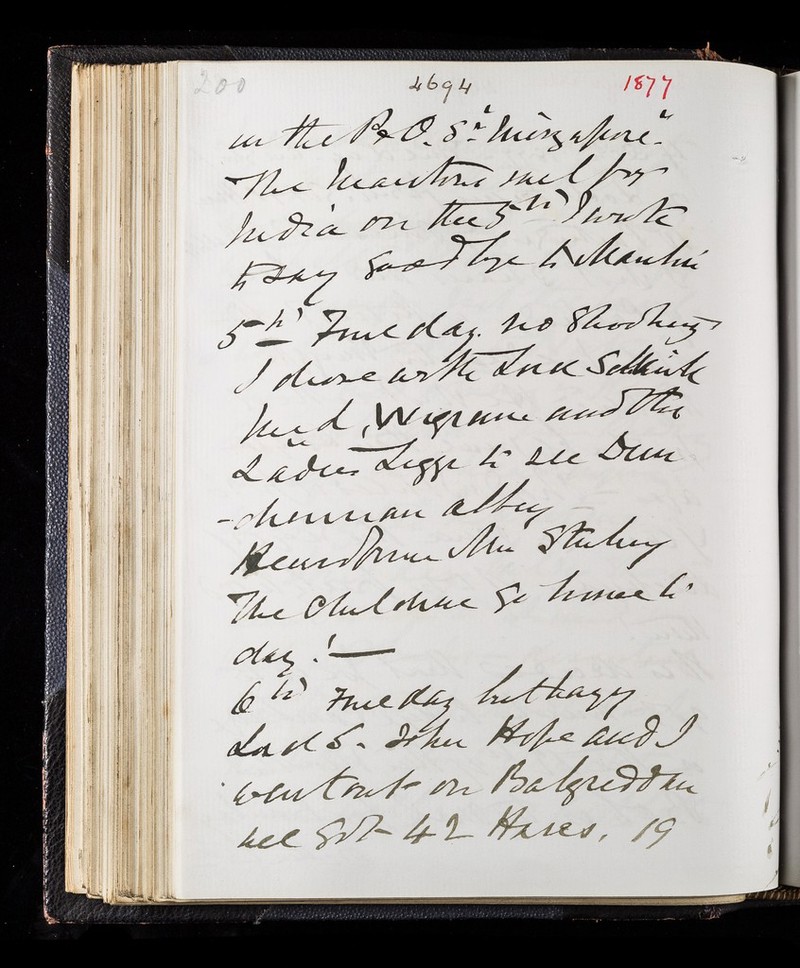 200 4694 1877
in the P&O. Sr. "Mirzapore".
The Mantons sail for
India on the 5th) I wrote
to say good bye to
5th Fine day. no Shooting
I drove with Lord Selkirk
, Wigram and the
Ladies Legge to see Dun
-drennan abbey -
Heard from Mr
The Children go home to
day! —
6th Fine day but hazy
Lord S. John Hope and I
went out on Balgreddan
we got 42 Hares, 19